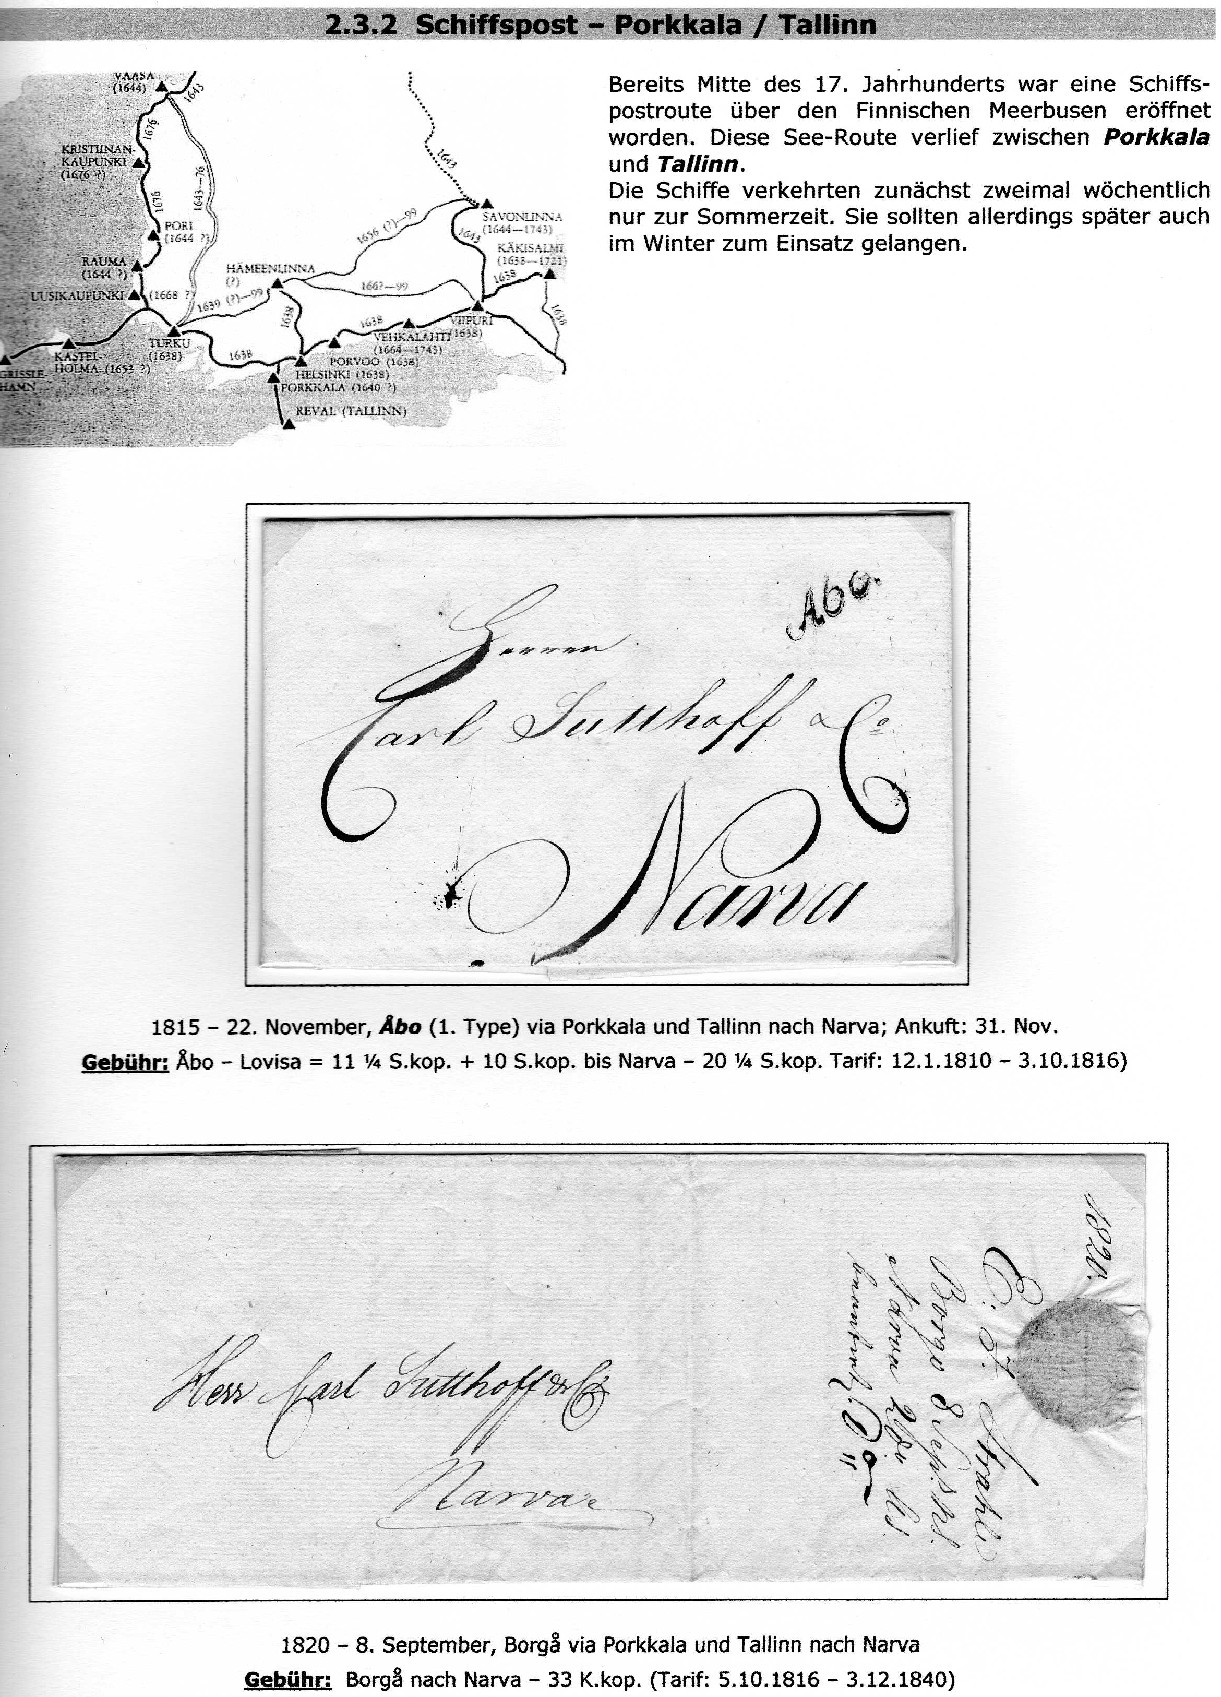 2.3.2 Schiffspost – Porkkala / Tallinn
VAASA
(1644)
1643
1676
KRISTIINAN-
KAUPUNKI
(1676 ?)
1643—76
1676
PORI
(1644 ?)
RAUMA
(1644 ?)
UUSIKAUPUNKI (1668 ?)
1643
SAVONLINNA
(1644—1743)
1656 (?)—99
1643
KÄKISALMI
(1638—1721)
HÄMEENLINNA
(?)
1639 (?)—99
166?—99
1638
1638
1638
1638
VIIPURI
(1638)
VEHKALAHTI
(1664—1743)
TURKU
(1638)
1638
KASTEL-
HOLMA (1652 ?)
GRISSLE
HAMN
PORVOO (1638)
HELSINKI (1638)
PORKKALA (1640 ?)
REVAL (TALLINN)
Bereits Mitte des 17. Jahrhunderts war eine Schiffs-
postroute über den Finnischen Meerbusen eröffnet
worden. Diese See-Route verlief zwischen Porkkala
und Tallinn.
Die Schiffe verkehrten zunächst zweimal wöchentlich
nur zur Sommerzeit. Sie sollten allerdings später auch
im Winter zum Einsatz gelangen.
Abo.
Herren
Carl Sutthoff & Co
Narva
1815 – 22. November, Åbo (1. Type) via Porkkala und Tallinn nach Narva; Ankuft: 31. Nov.
Gebühr: Åbo – Lovisa = 11 ¼ S.kop. + 10 S.kop. bis Narva – 20 ¼ S.kop. Tarif: 12.1.1810 – 3.10.1816)
Herr Carl Sutthoff & Co
Narva
1820.
C. F. Strahle
Borgo 8 Sept.
Narva
1820 – 8. September, Borgå via Porkkala und Tallinn nach Narva
Gebühr: Borgå nach Narva – 33 K.kop. (Tarif: 5.10.1816 – 3.12.1840)